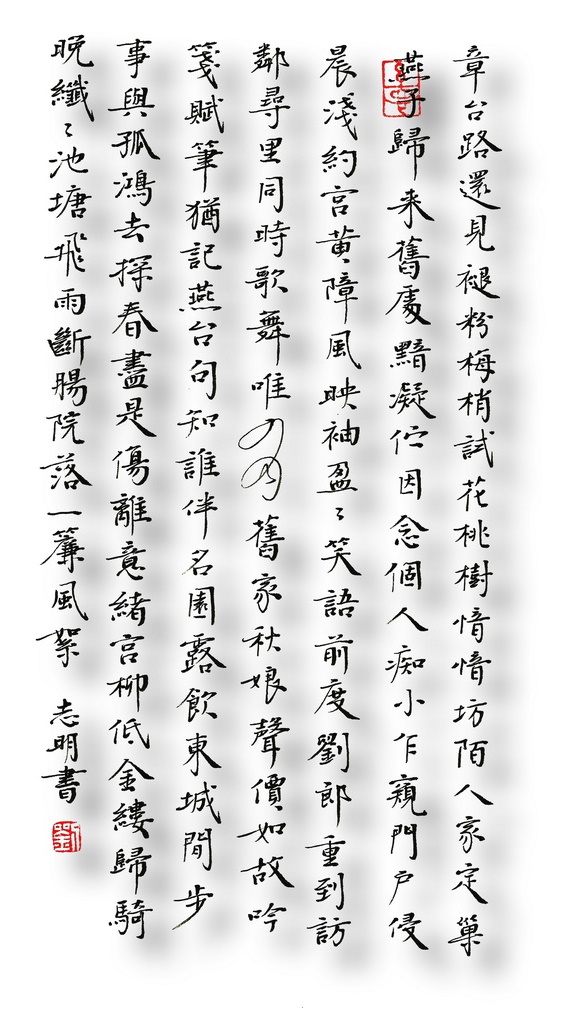 章台路還見褪粉梅梢試花桃樹愔愔坊陌人家定巢
燕子歸来舊處黯凝佇因念個人痴小乍窺門戶侵
晨淺約宮黃障風映袖盈〻笑語前度劉郎重到訪
鄰尋里同時歌舞唯舊家秋娘聲價如故吟
箋賦筆猶記燕台句知誰伴名園露飲東城閒步
事與孤鴻去探春盡是傷離意緒宮柳低金縷歸騎
晚纖〻池塘飛雨斷腸院落一簾風絮 志明書
劉